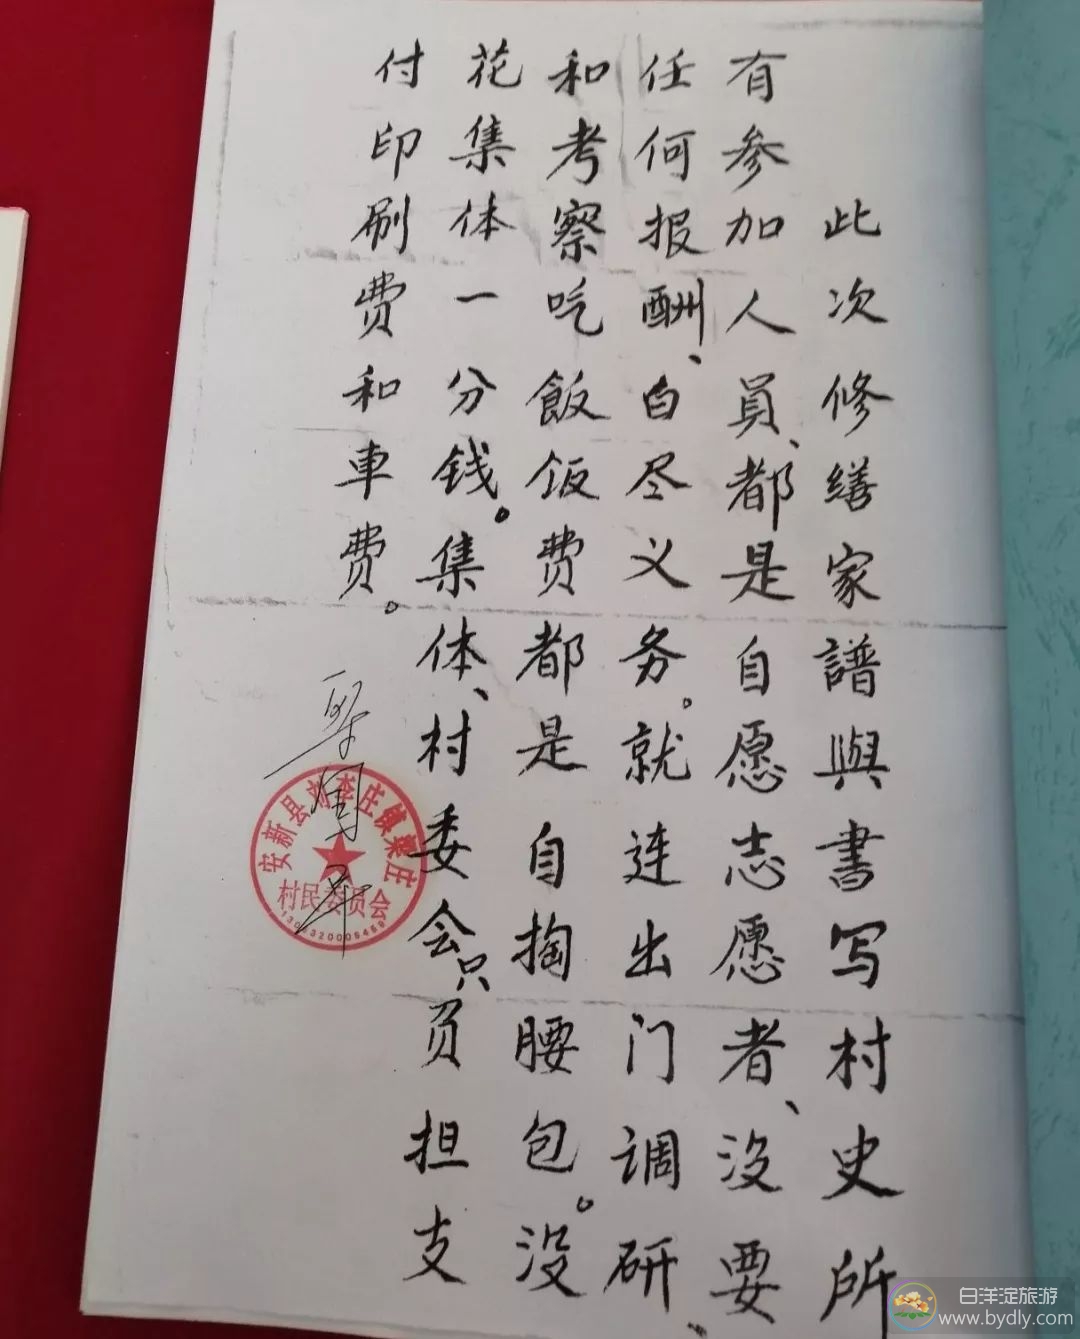 此次修缮家譜與書写村史所
有参加人員、都是自愿志愿者、没要
任何报酬、白尽义务。就连出门调研、
和考察吃飯饭费都是自掏腰包。没
花集体一分钱。集体、村委会只负担支
付印刷费和車费。
安新县刘李庄镇梁庄
村民委员会
白洋淀旅游
www.bydly.com